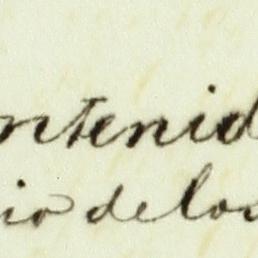 ntenid
io de los